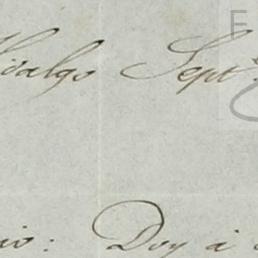 Hidalgo Septe
io: Doy á